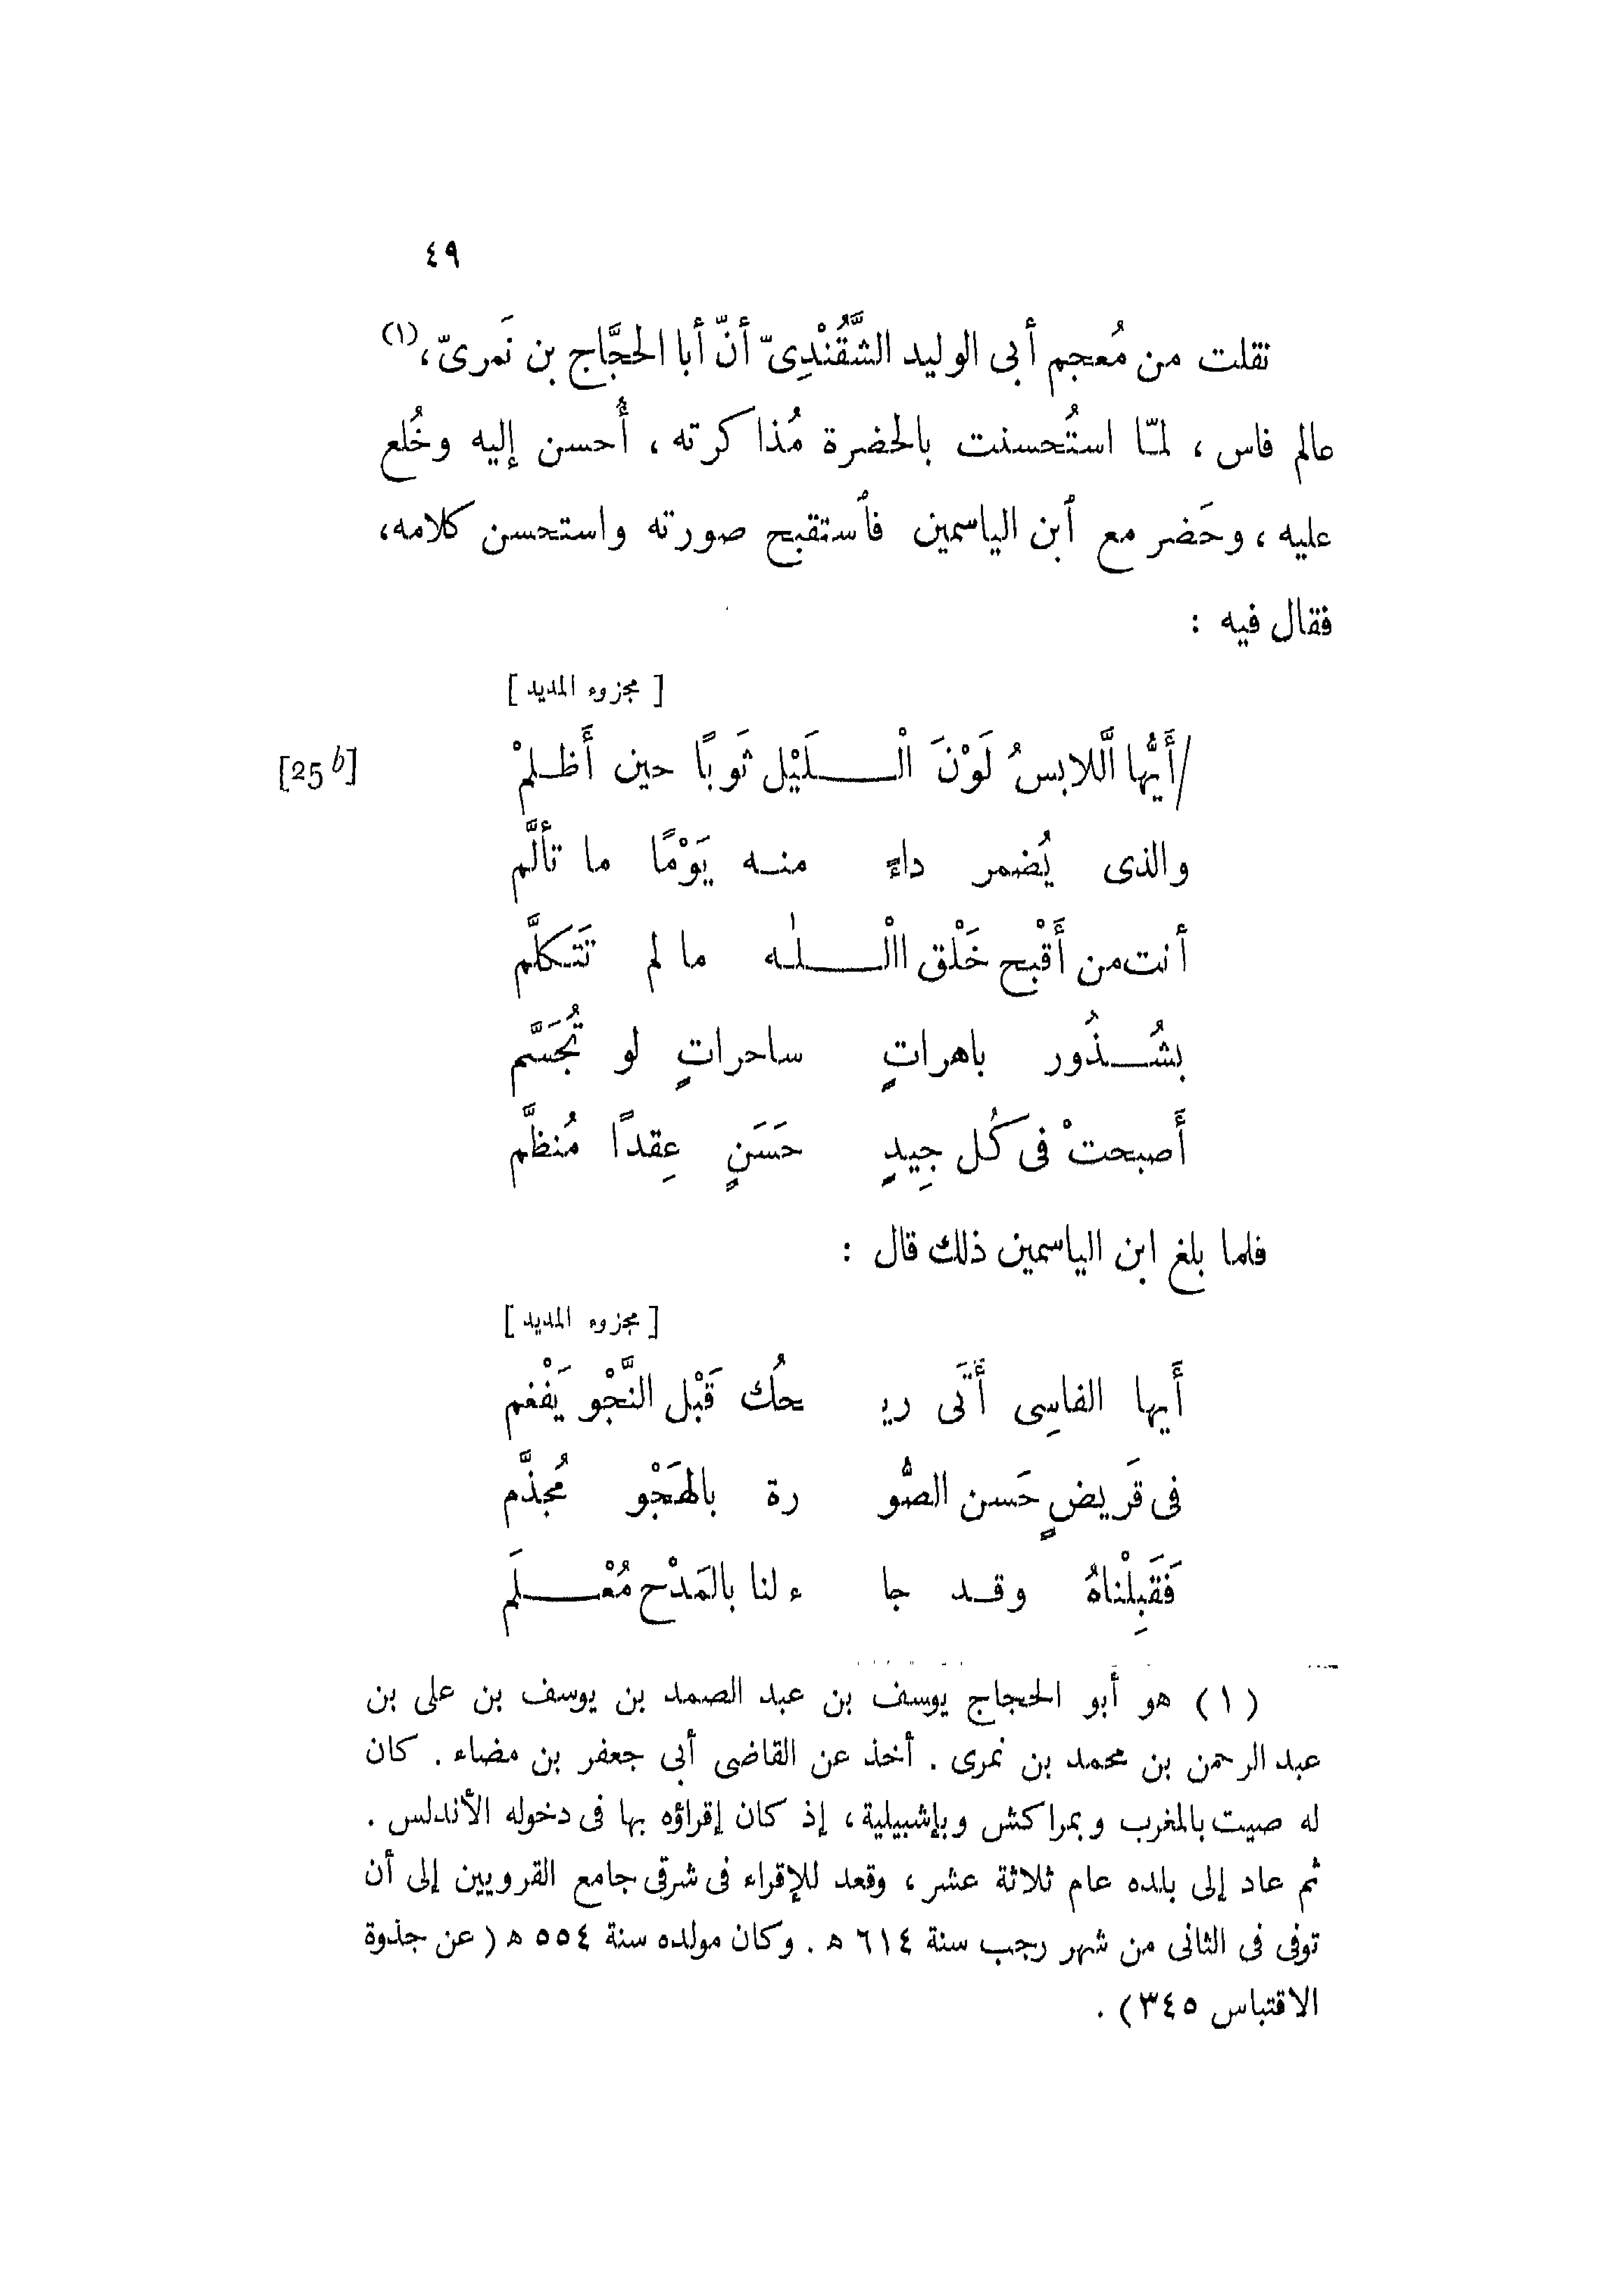 ٤٩
نقلت من مُعجم أبى الوليد الشَّقُنْدِىّ أنّ أبا الحجَّاج بن نَمرىّ،(١)
عالم فاس ، لمّا استُحسنت بالحضرة مُذاكرته ، أُحسن إليه وخُلع
عليه ، وحَضر مع ٱبن الياسمين فٱستقبح صورته واستحسن كلامه،
فقال فيه :
[ مجزوء المديد ]
/أَيُّها اللَّابسُ لَوْنَ الْـلَيْل ثَوبًا حين أَظـلمْ [25 b]
والذى يُضمر داءً منـه يَوْمًا ما تألَّم
أنت من أَقْبح خَلْق االْـلـٰه ما لم تَتـكلَّم
بشُـذُور باهراتٍ ساحراتٍ لو تُجَسَّم
أَصبحتْ فى كُل جِيدٍ حَسَنٍ عِقدًا مُنظَّم
فلما بلغ ابن الياسمين ذلك قال :
[ مجزوء المديد ]
أَيها الفاسِى أَتَى ريـ ـحُك قَبْل النَّجْو يَفْغم
فى قَريضٍ حَسن الصُّو رة بالهَجْو مُجذَّم
فَقَبِلْناهُ وقـد جا ء لنا بالمَدْح مُعْـلَم
(١) هو أبو الحجاج يوسف بن عبد الصمد بن يوسف بن على بن
عبد الرحمن بن محمد بن نمرى . أخذ عن القاضى أبى جعفر بن مضاء . كان
له صيت بالمغرب وبمراكش وبإشبيلية ، إذ كان إقراؤه بها فى دخوله الأندلس .
ثم عاد إلى بلده عام ثلاثة عشر ، وقعد للإقراء فى شرقى جامع القرويين إلى أن
توفى فى الثانى من شهر رجب سنة ٦١٤ ه . وكان مولده سنة ٥٥٤ ه ( عن جذوة
الاقتباس ٣٤٥ ) .